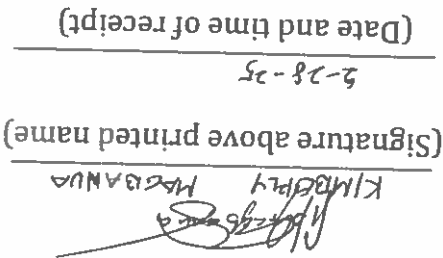 KIMBERLY MAGBANUA
(Signature above printed name)
2-28-25
(Date and time of receipt)